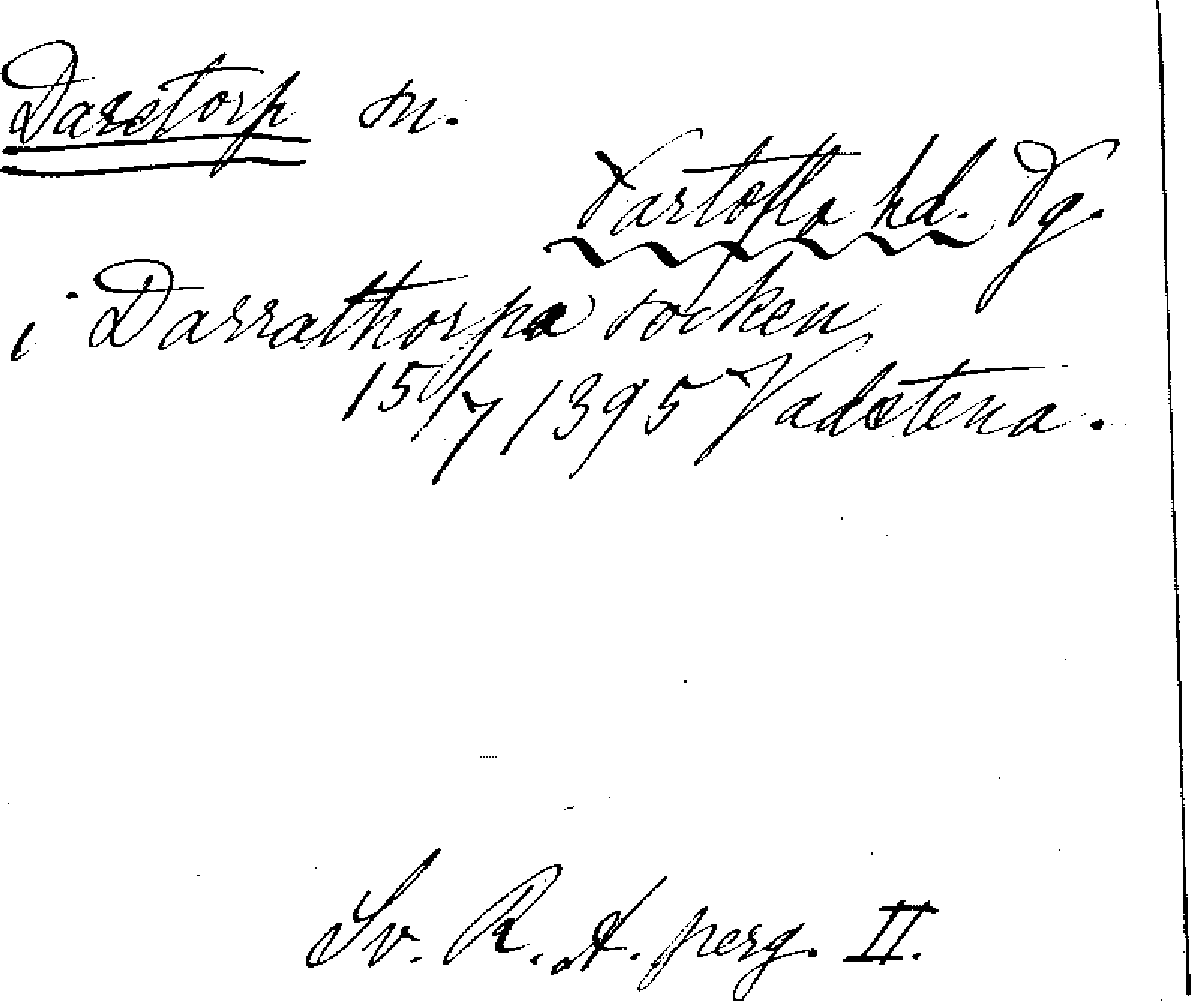 Daretorp sn.
Vartofta hd. Vg.
i Darrathorpa socken
15/7 1395 Vadstena.
Sv. R. A. perg. II.